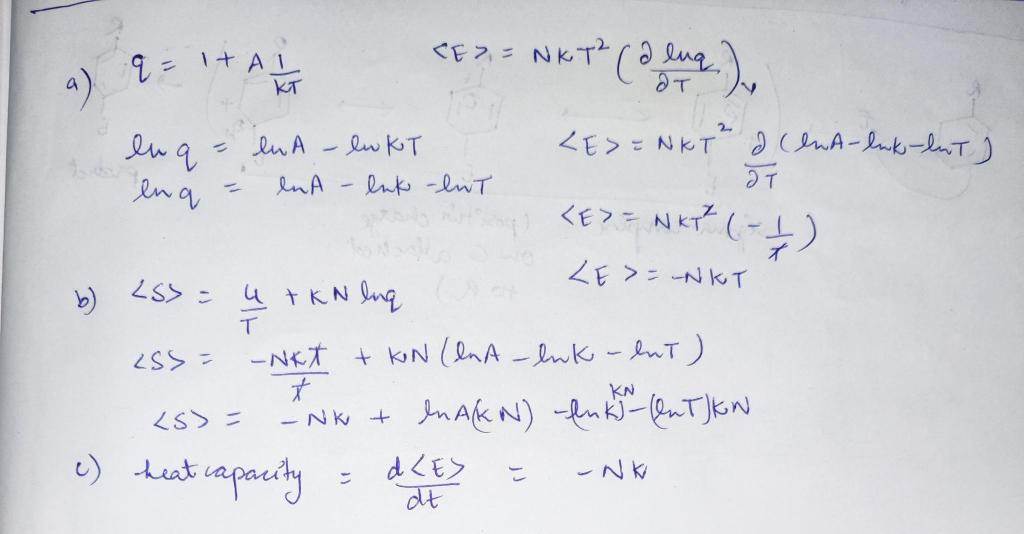 a) q = 1 + A 1/KT <E> = NKT² (∂ ln q / ∂T)v
ln q = ln A - ln KT <E> = NKT² ∂/∂T (ln A - ln k - ln T)
ln q = ln A - ln k - ln T
<E> = NKT² (- 1/T)
<E> = -NKT
b) <S> = U/T + KN ln q
<S> = -NKT/T + KN (ln A - ln k - ln T)
<S> = -NK + ln A(KN) - (ln k)KN - (ln T)KN
c) heat capacity = d<E>/dt = -NK